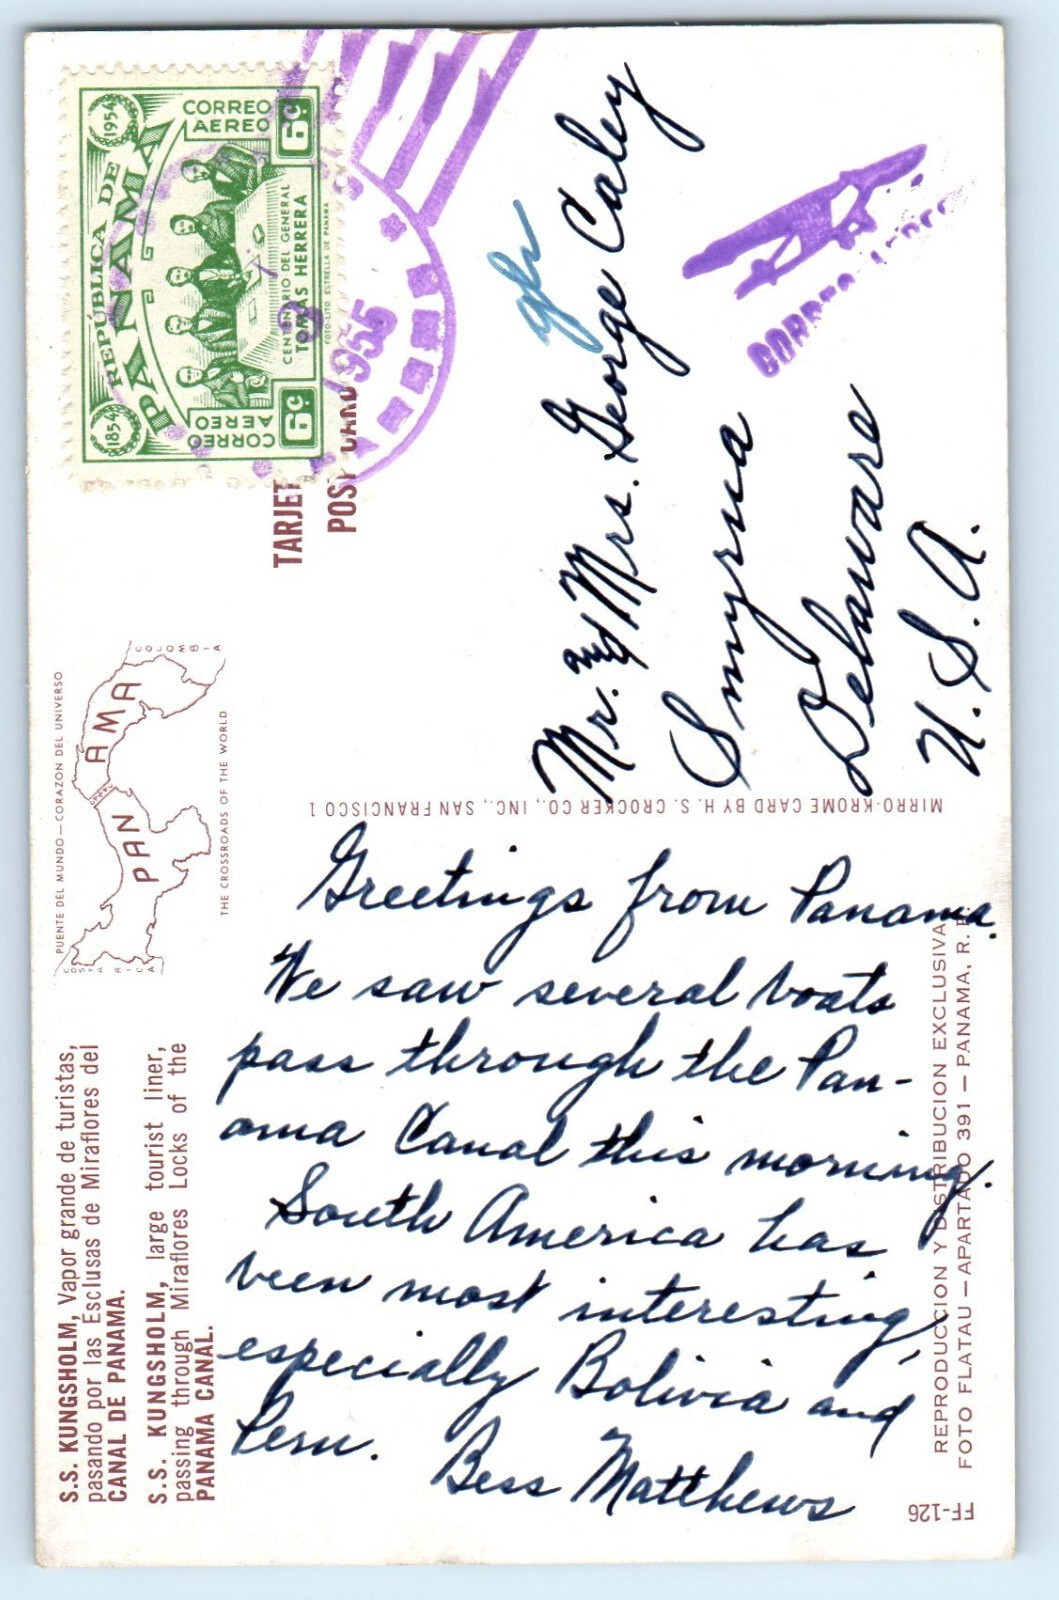 CORREO
AEREO
6c.
1954
REPÚBLICA DE
PANAMA
1854
CENTENARIO DEL GENERAL
TOMÁS HERRERA
FOTO-LITO ESTRELLA DE PANAMA
6c.
CORREO
AEREO
1955
CORREO AEREO
TARJET
POST CARD
Mr. and Mrs. George Caley
Smyrna
Delaware
U. S. A.
PUENTE DEL MUNDO—CORAZON DEL UNIVERSO
COLOMBIA
PAN AMA
COSTA RICA
THE CROSSROADS OF THE WORLD
MIRRO-KROME CARD BY H. S. CROCKER CO., INC., SAN FRANCISCO 1
S.S. KUNGSHOLM, Vapor grande de turistas,
pasando por las Esclusas de Miraflores del
CANAL DE PANAMA.
S.S. KUNGSHOLM, large tourist liner,
passing through Miraflores Locks of the
PANAMA CANAL.
Greetings from Panama.
We saw several boats
pass through the Pan-
ama Canal this morning.
South America has
been most interesting,
especially Bolivia and
Peru.
Bess Matthews
REPRODUCCION Y DISTRIBUCION EXCLUSIVA
FOTO FLATAU—APARTADO 391—PANAMA, R.
FF-126